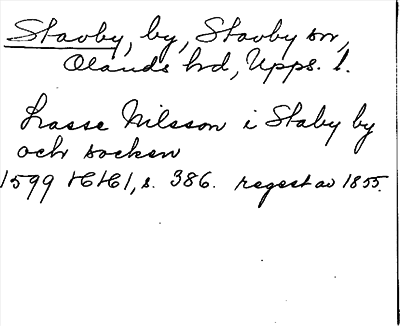 Stavby, by, Stavby sn,
Olands hd, Upps. l.
Lasse Nilsson i Staby by
och socken
1599 HH1, s. 386. regest av 1855.